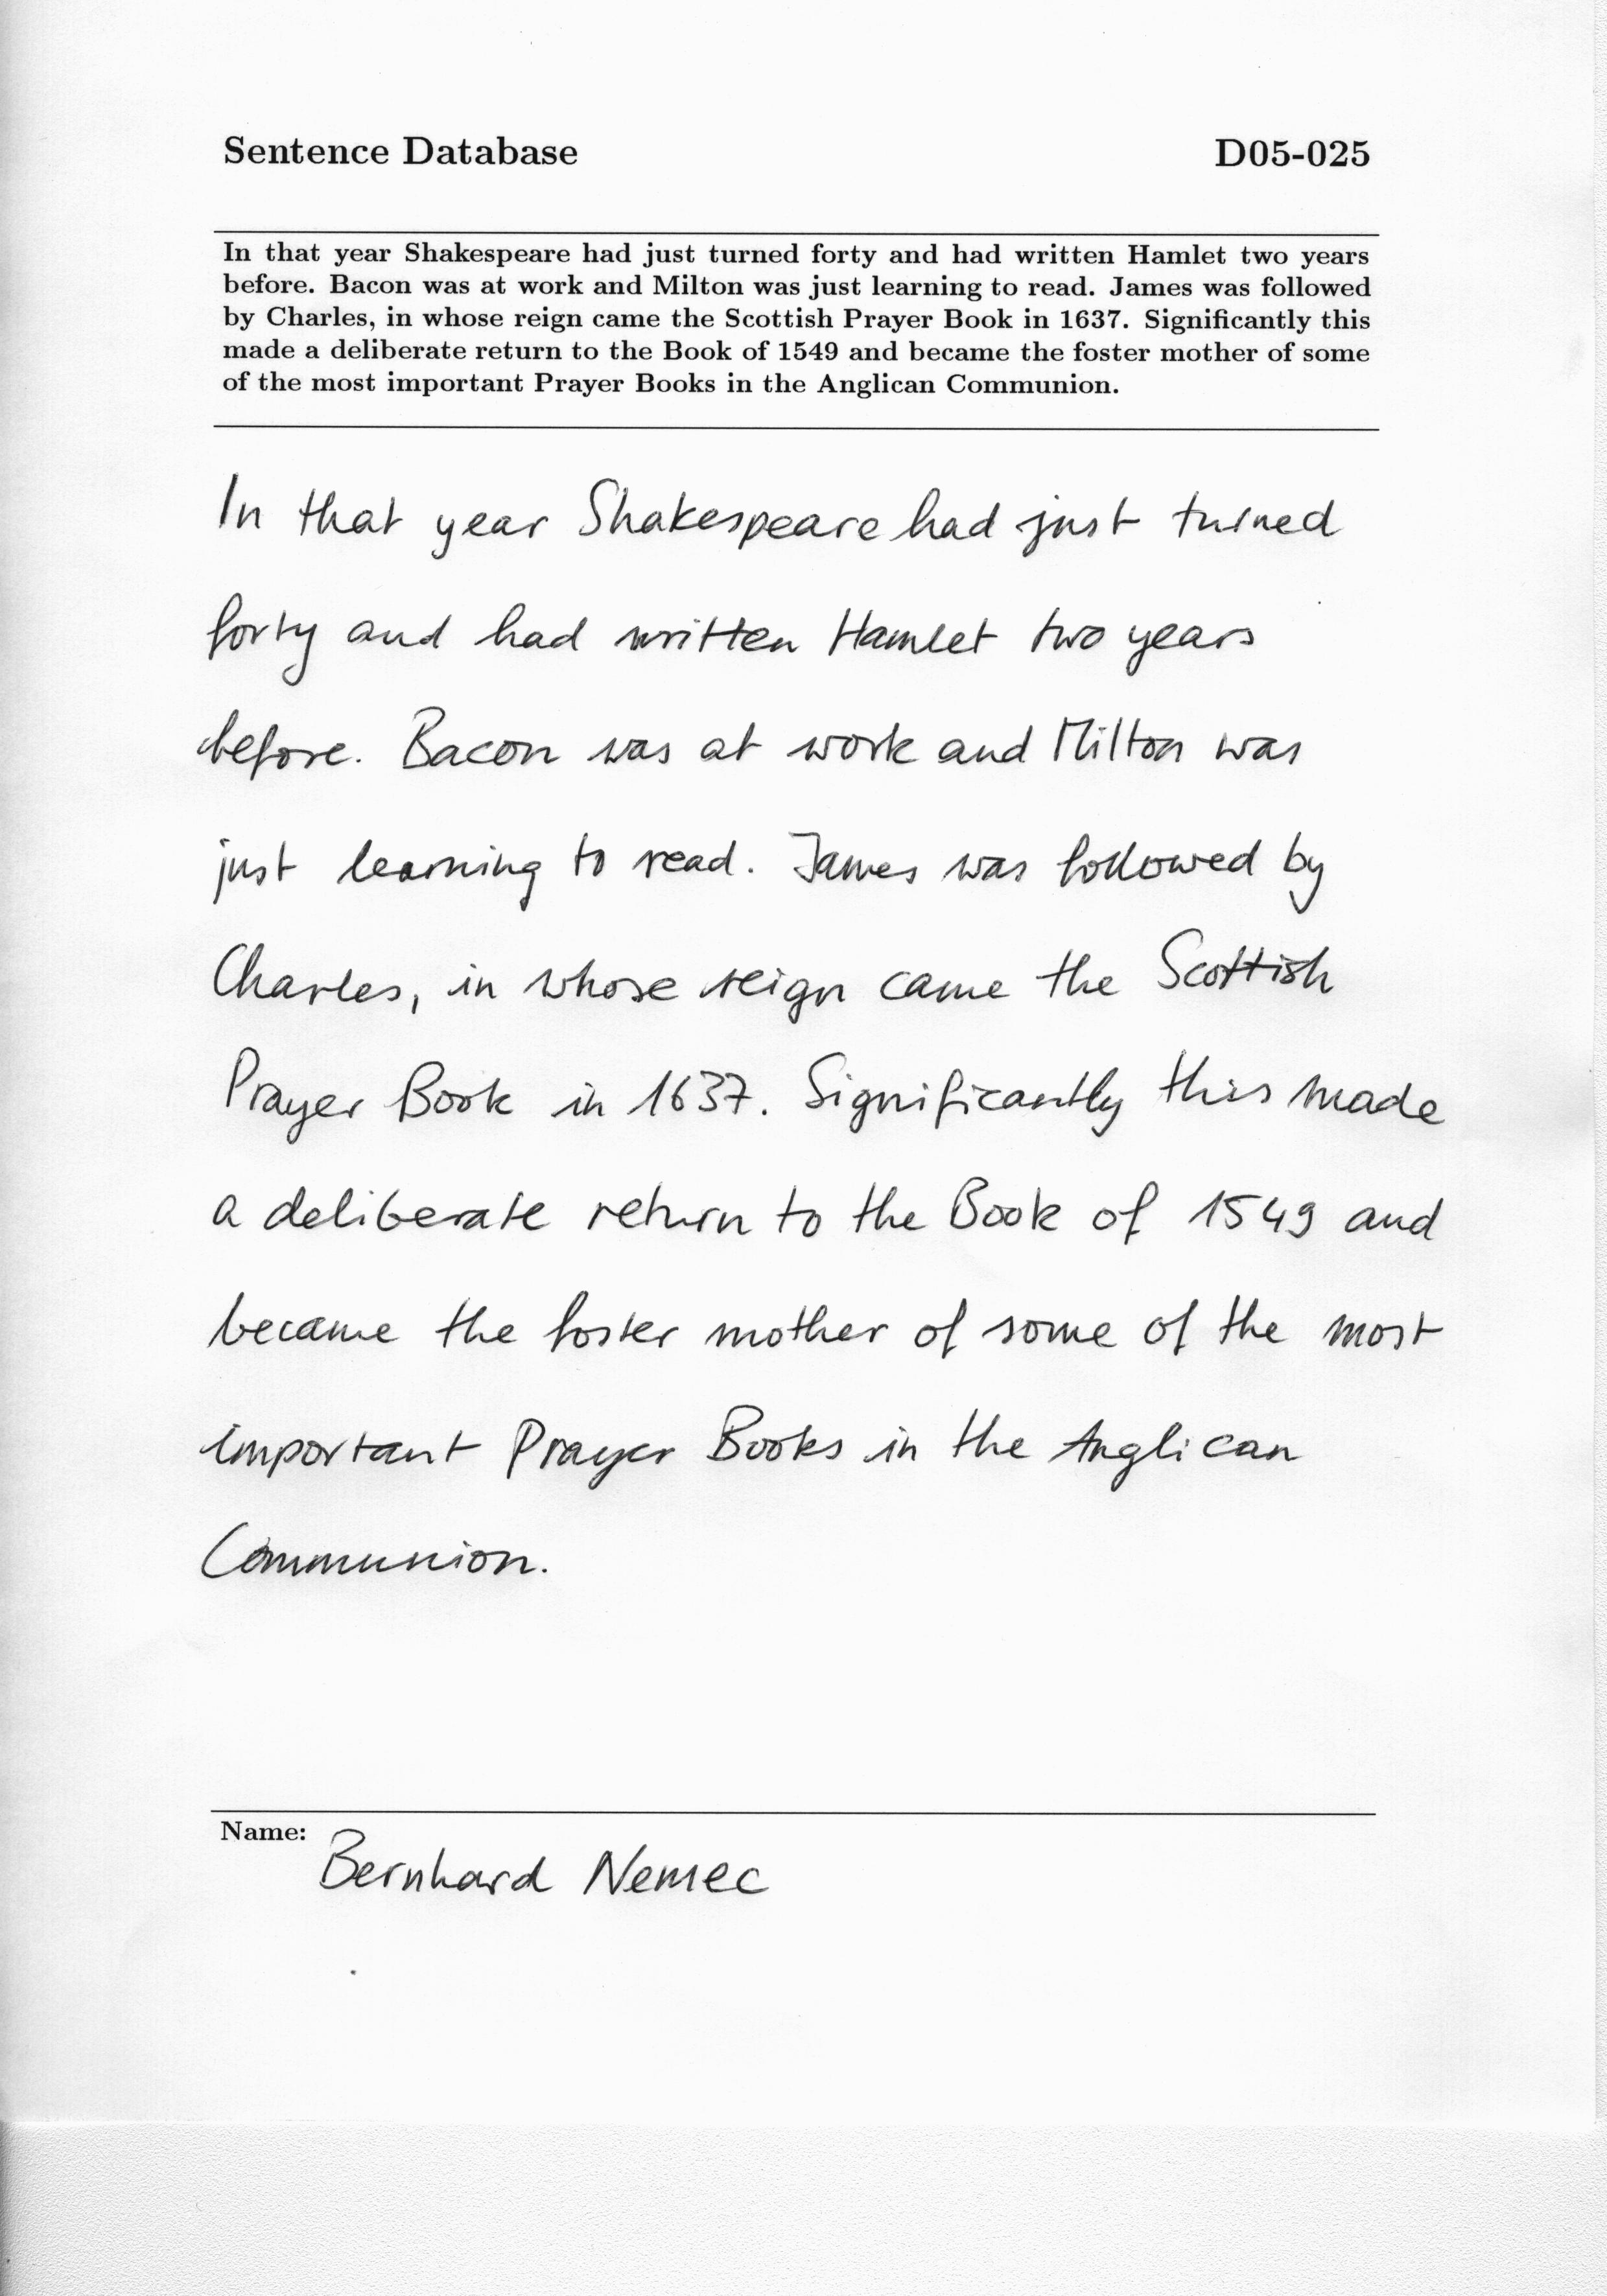 Sentence Database D05-025
In that year Shakespeare had just turned forty and had written Hamlet two years
before. Bacon was at work and Milton was just learning to read. James was followed
by Charles, in whose reign came the Scottish Prayer Book in 1637. Significantly this
made a deliberate return to the Book of 1549 and became the foster mother of some
of the most important Prayer Books in the Anglican Communion.
In that year Shakespeare had just turned
forty and had written Hamlet two years
before. Bacon was at work and Milton was
just learning to read. James was followed by
Charles, in whose reign came the Scottish
Prayer Book in 1637. Significantly this made
a deliberate return to the Book of 1549 and
became the foster mother of some of the most
important Prayer Books in the Anglican
Communion.
Name: Bernhard Nemec